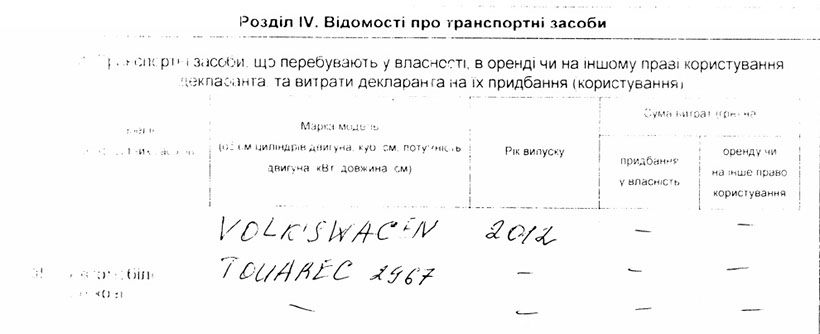 Розділ IV. Відомості про транспортні засоби
засоби, що перебувають у власності, в оренді чи на іншому праві користування
та витрати декларанта на їх придбання (користування)
Сума витрат
Марка модель
(об'єм циліндрів двигуна, куб. см, потужність
двигуна, кВт, довжина, см)
Рік випуску
придбання
у власність
оренду чи
на інше право
користування
VOLKSWAGEN 2012 – –
TOUAREG 2967 – – –
– – –